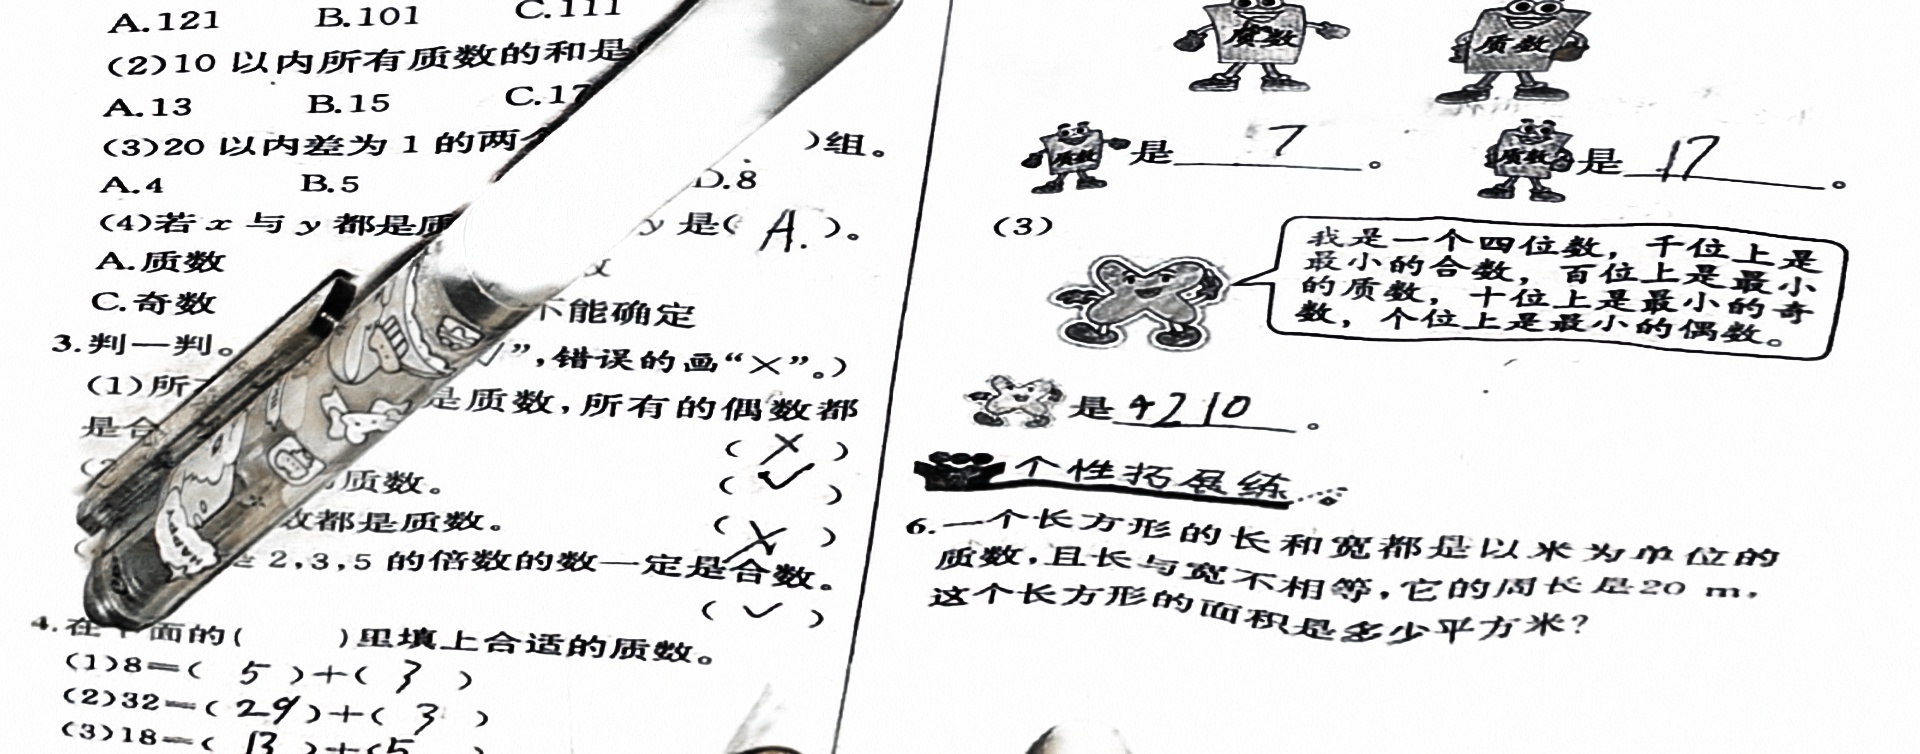 A.121 B.101 C.111
(2)10 以内所有质数的和是
A.13 B.15 C.17
(3)20 以内差为 1 的两个 )组。
A.4 B.5 D.8
(4)若 x 与 y 都是质 y 是( A. )。
A.质数
C.奇数 不能确定
3.判一判。 ”,错误的画“×”。)
(1)所 是质数,所有的偶数都
是合 ( × )
质数。 ( ✓ )
数都是质数。 ( × )
是 2,3,5 的倍数的数一定是合数。
( ✓ )
4.在下面的( )里填上合适的质数。
(1)8=( 5 )+( 3 )
(2)32=( 29 )+( 3 )
(3)18=( 13 )+( 5 )
质数 质数
质数 是 7 。 质数 是 17 。
(3)
我是一个四位数，千位上是
最小的合数，百位上是最小
的质数，十位上是最小的奇
数，个位上是最小的偶数。
是 4210 。
个性拓展练
6.一个长方形的长和宽都是以米为单位的
质数,且长与宽不相等,它的周长是20 m,
这个长方形的面积是多少平方米?